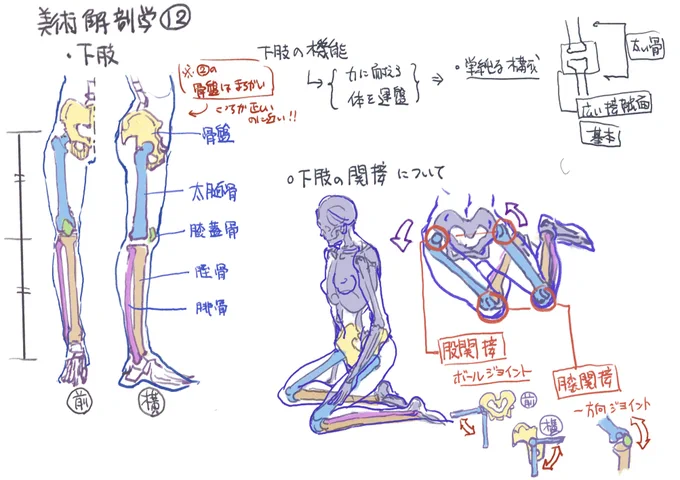 美術解剖学⑫
・下肢
※②の
骨盤はまちがい
こっちが正しい
のに近い!!
下肢の機能
力に耐える
体を運盤
・単純な構成
太い骨
広い接触面
基本
骨盤
太腿骨
膝蓋骨
脛骨
腓骨
前
横
○下肢の関接について
股関接
ボールジョイント
膝関接
一方向ジョイント
前
横